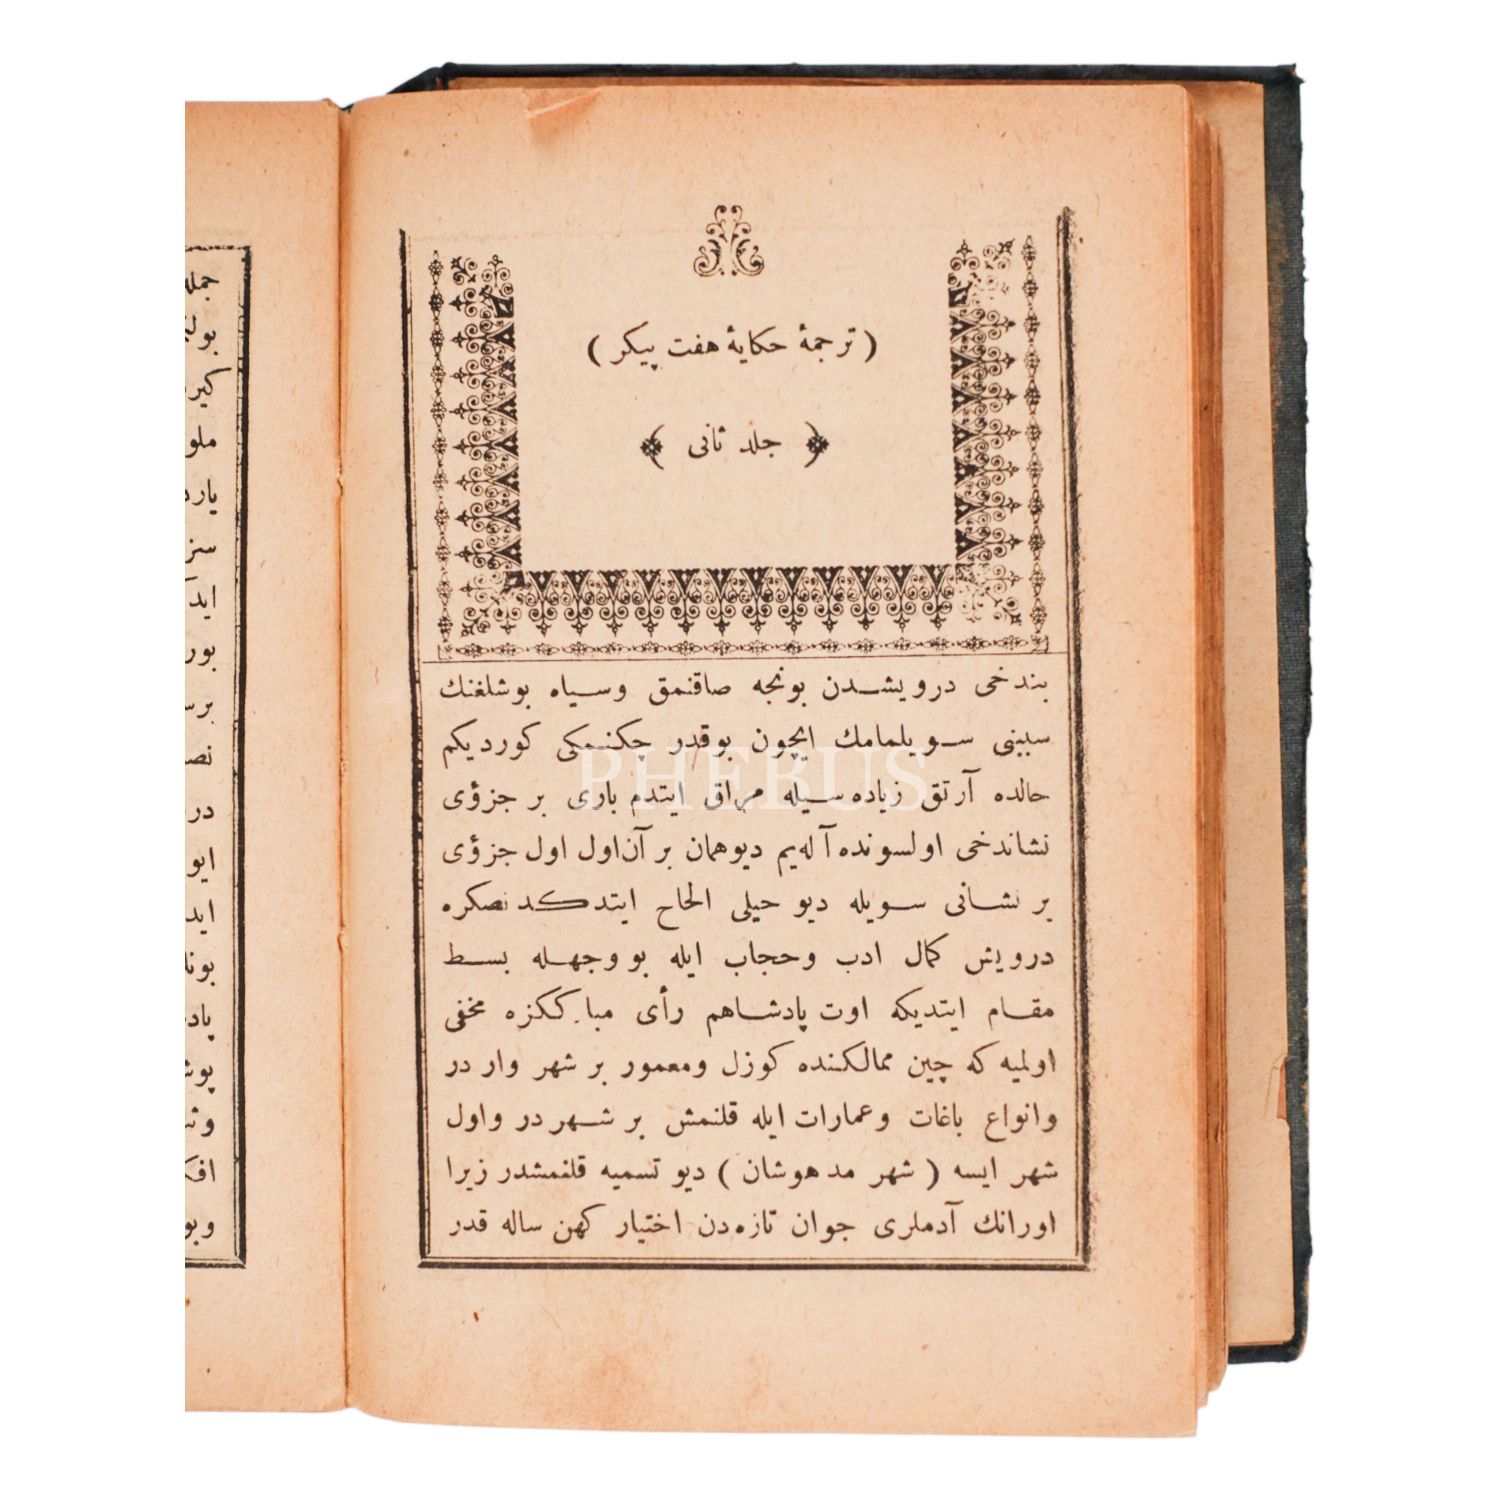 ( ترجمهٔ حکایهٔ هفت پیکر )
﴿ جلد ثانی ﴾
بندخی درویشدن بونجه صاقنمق وسیاه بوشلغنك
سببنی سویلمامك ایچون بوقدر چکنمکی کوردیکم
حالده آرتق زیاده سیله مراق ایتدم باری بر جزؤی
نشاندخی اولسونده آله‌یم دیوهمان بر آن اول اول جزؤی
بر نشانی سویله دیو حیلی الحاح ایتدکد نصکره
درویش کمال ادب وحجاب ایله بو وجهله بسط
مقام ایتدیکه اوت پادشاهم رأی مبارککزه مخفی
اولمیه که چین ممالکنده کوزل ومعمور بر شهر وار در
وانواع باغات وعمارات ایله قلنمش بر شهر در واول
شهر ایسه ( شهر مدهوشان ) دیو تسمیه قلنمشدر زیرا
اورانك آدملری جوان تازه‌دن اختیار کهن ساله قدر
جمله
ملو
سنز
بور
نصـ
در
ایو
اید
PHEBUS